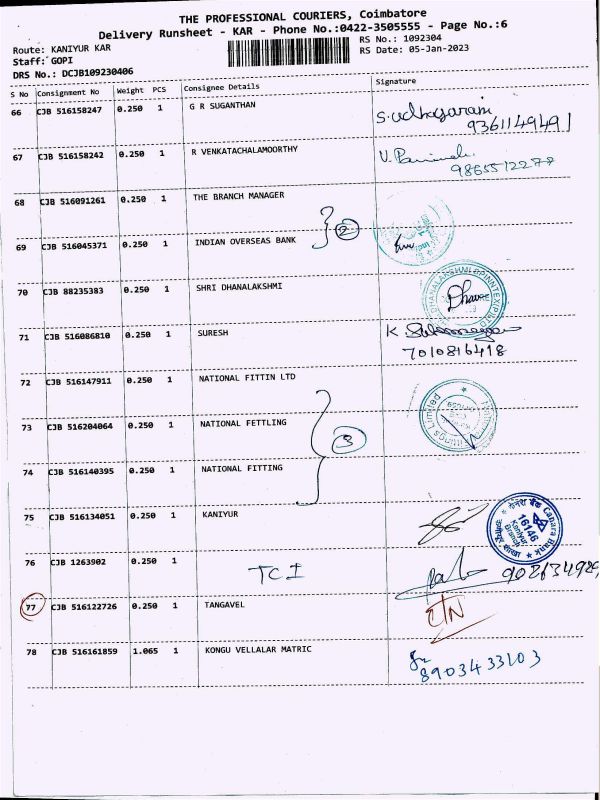 THE PROFESSIONAL COURIERS, Coimbatore
Delivery Runsheet - KAR - Phone No.:0422-3505555 - Page No.:6
Route: KANIYUR KAR RS No.: 1092304
Staff: GOPI RS Date: 05-Jan-2023
DRS No.: DCJB109230406
S No Consignment No Weight PCS Consignee Details Signature
66 CJB 516158247 0.250 1 G R SUGANTHAN
9361149491
67 CJB 516158242 0.250 1 R VENKATACHALAMOORTHY
9865512277
68 CJB 516091261 0.250 1 THE BRANCH MANAGER
2
69 CJB 516045371 0.250 1 INDIAN OVERSEAS BANK
70 CJB 88235383 0.250 1 SHRI DHANALAKSHMI
71 CJB 516086810 0.250 1 SURESH
7010816418
72 CJB 516147911 0.250 1 NATIONAL FITTIN LTD
73 CJB 516204064 0.250 1 NATIONAL FETTLING
3
74 CJB 516140395 0.250 1 NATIONAL FITTING
75 CJB 516134051 0.250 1 KANIYUR
केनरा बैंक Canara Bank
16146
Kaniyur
Branch
76 CJB 1263902 0.250 1 TCI
77 CJB 516122726 0.250 1 TANGAVEL
78 CJB 516161859 1.065 1 KONGU VELLALAR MATRIC
8903433103